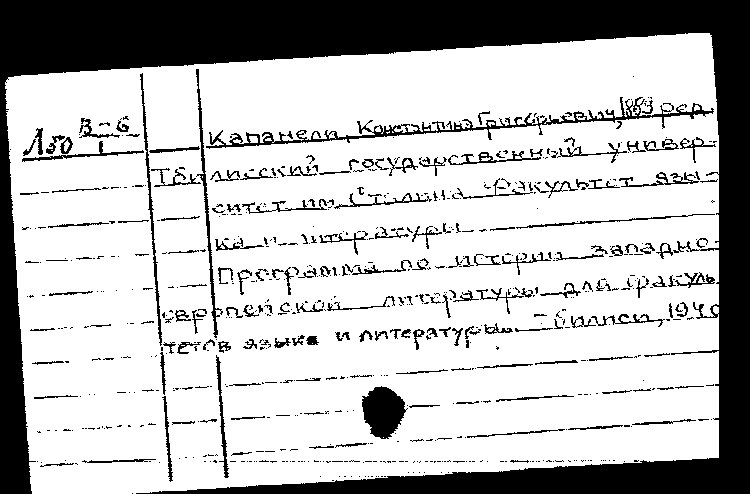 Л50 В-6
1
Капанели, Константина Григорьевич, 1889 ред.
Тбилисский государственный универ-
ситет им Сталина Факультет язы-
ка и литературы
Программа по истории западно-
европейской литературы для факуль
тетов языка и литературы. Тбилиси, 1940